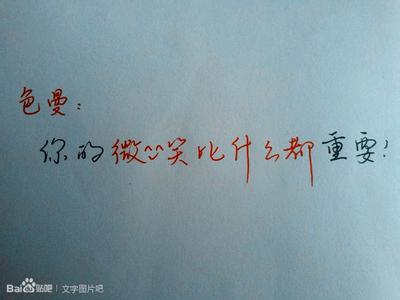 色曼：
你的微^^笑比什么都重要！
Bai贴吧 | 文字图片吧